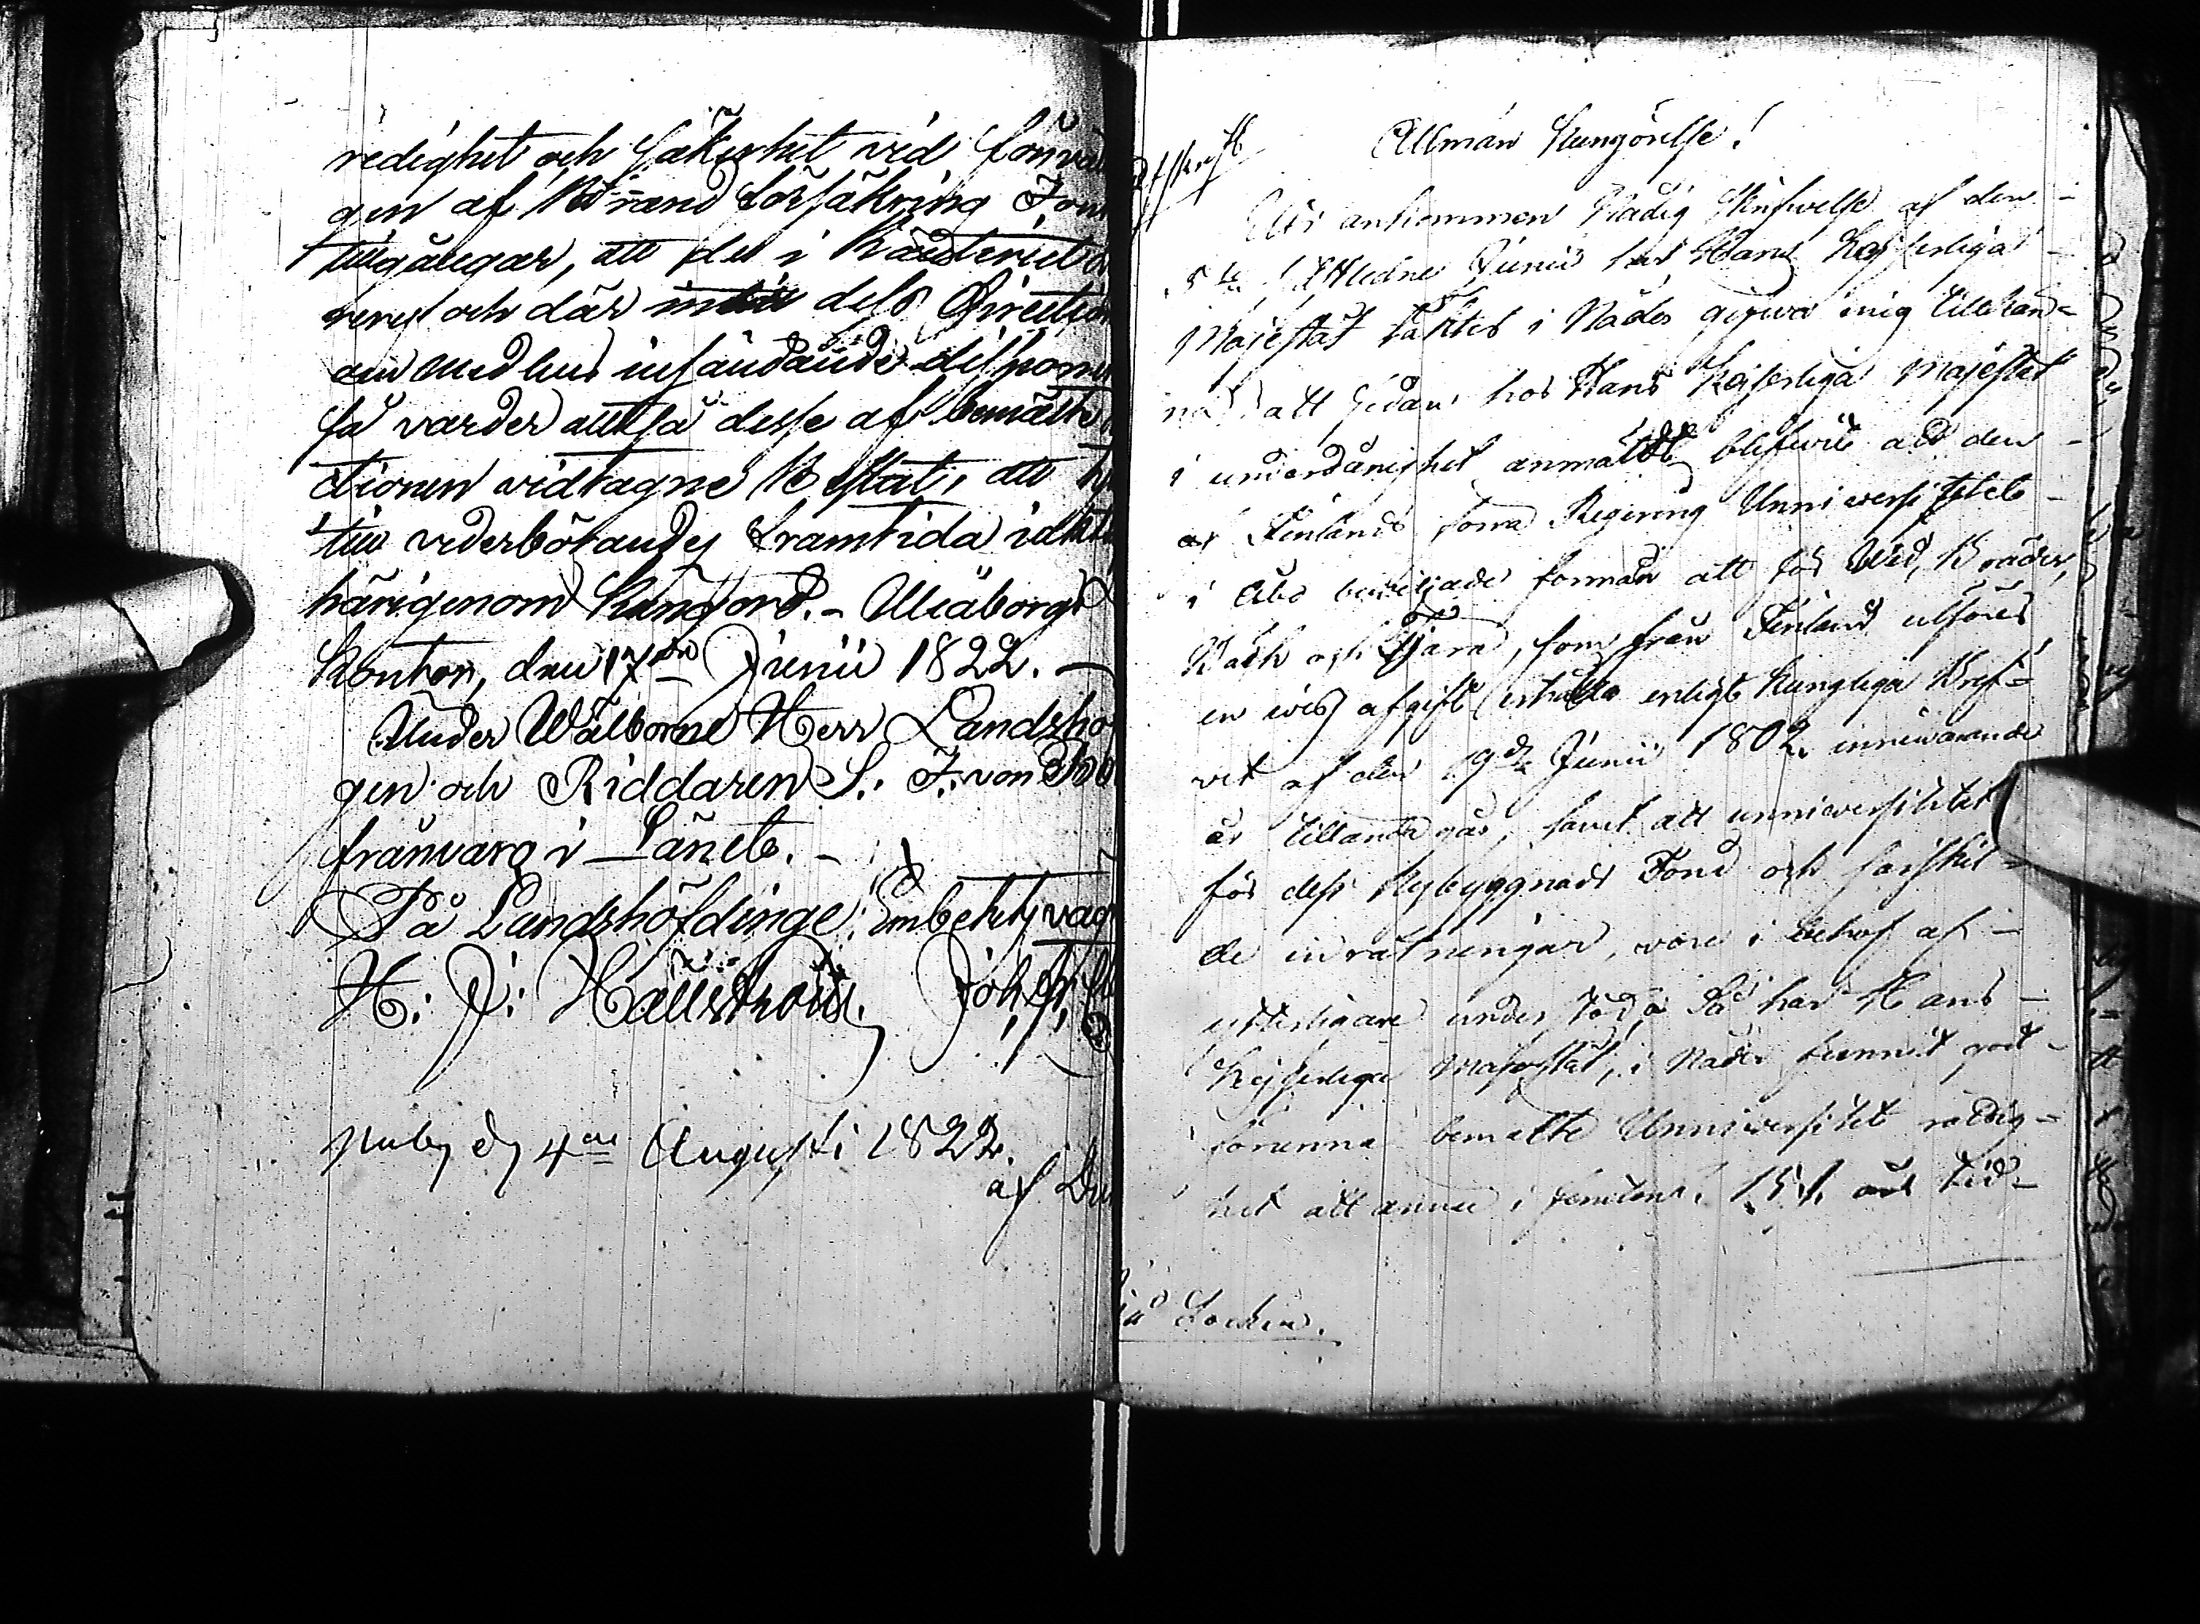 redighet och säkerhet vid förval
gen af Brand försäkring Fon
tillgångar, att det i Räntériet
reres och där dess Direction
om medlens insändande dispone
så varder alltså desse af bemälte
ctionen vidtagne Beslut, att
till vederbörandes framtida iaktt
härigenom kungjord. - Uleåborgs
Kontor, den 17de Junii 1822. -
Under Wälborne Herr Landshö
gen och Riddaren S. F. von Bo
frånvaro i Länet. -
På Landshöfdinge Embetets väg
H. J. Hällström. Joh.
d 4de Augusti 1822.
af
Afskrift
Allmän Kungörelse!
Uti ankommen Nådig Skrifvelse af den -
5te sistledne Junii har Hans Kejserliga -
Majestät täkts i Nåder gifwa mig tillkän=
na att sedan hos Hans Kejserliga Majestet
i underdånighet anmäldt blifwit att den -
af Finlands förra Regering Unniversitetet -
i Åbo bewiljade förmån att för Wed, Bräder,
Bark och Tjära, som från Finland utföres
en wiss afgift erhålla enligt Kungliga Bref=
vet af den 19de Junii 1802 innewarande
år tilländagår, samt att unniversitetet
för dess Nybyggnads Fond och särskil=
de inrätningar, wore i behof af -
ytterligare understöd, Så har Hans -
Kejserliga Majestät, i Nåder funnit godt -
förunna bemälte Unniversitet rättig=
het att ännu i femton 15. års tid -
Socken.